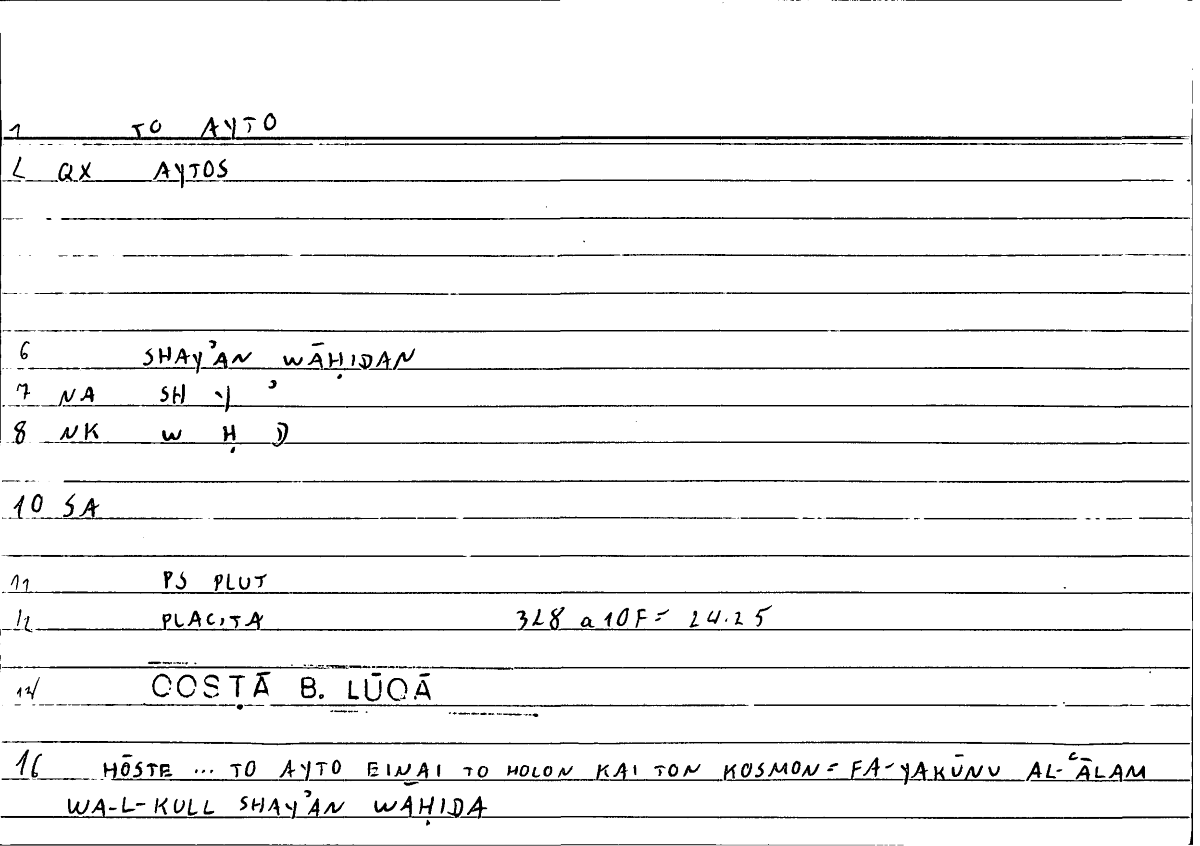 1 TO AYTO
2 QX AYTOS
6 SHAYʾAN WĀḤIDAN
7 NA SH Y ʾ
8 NK W Ḥ D
10 SA
11 PS PLUT
12 PLACITA 328 a 10F= 24.25
14 QOSṬĀ B. LŪQĀ
16 HŌSTE ... TO AYTO EINAI TO HOLON KAI TON KOSMON = FA-YAKŪNU AL-ʿĀLAM
WA-L-KULL SHAYʾAN WĀḤIDA